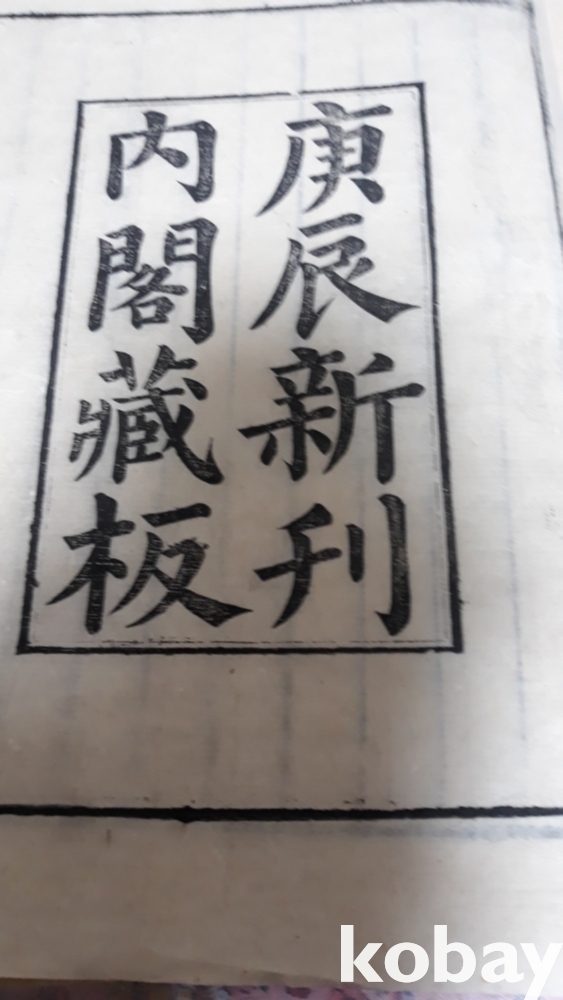 庚辰新刊
內閣藏板
kobay